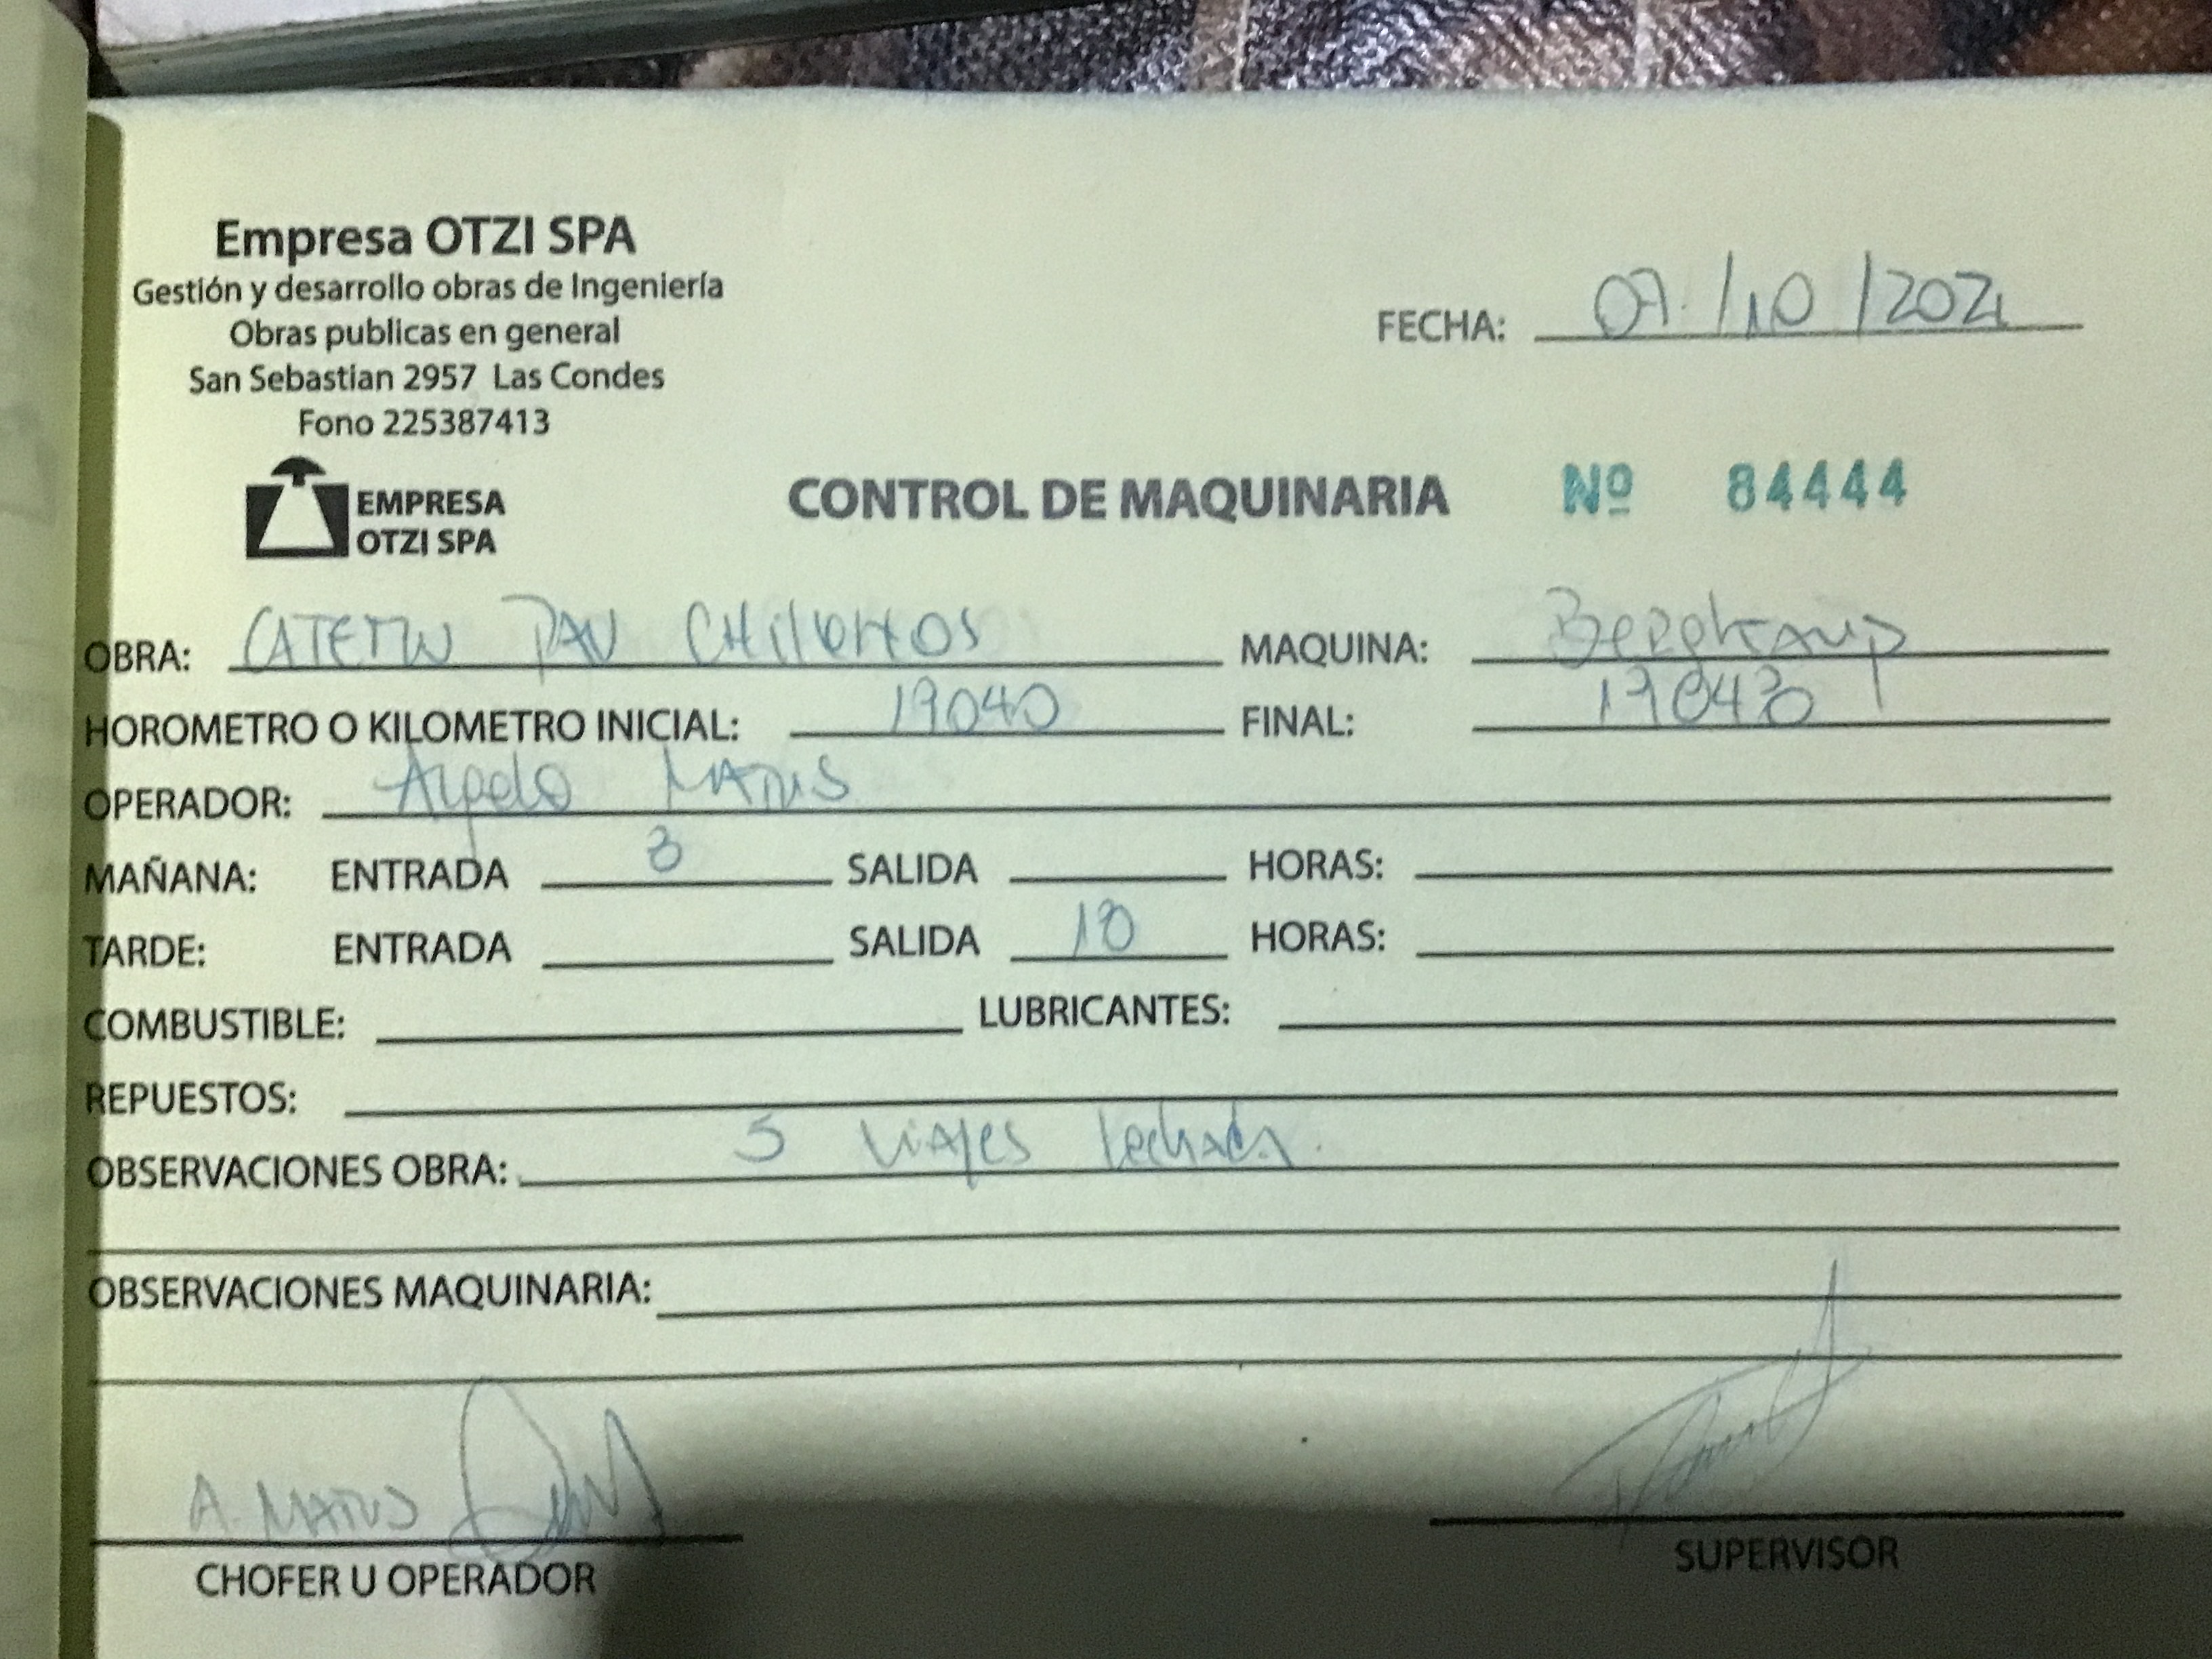 Empresa OTZI SPA
Gestión y desarrollo obras de Ingeniería
Obras publicas en general
San Sebastian 2957 Las Condes
Fono 225387413
FECHA: 07/10/2021
EMPRESA
OTZI SPA
CONTROL DE MAQUINARIA Nº 84444
OBRA: CATEMU PAN MAQUINA: Bergkamp
HOROMETRO O KILOMETRO INICIAL: 19040 FINAL:
OPERADOR: MATUS
MAÑANA: ENTRADA 8 SALIDA HORAS:
TARDE: ENTRADA SALIDA 18 HORAS:
COMBUSTIBLE: LUBRICANTES:
REPUESTOS:
OBSERVACIONES OBRA: 5 viajes lechada.
OBSERVACIONES MAQUINARIA:
A. MATUS
CHOFER U OPERADOR
SUPERVISOR